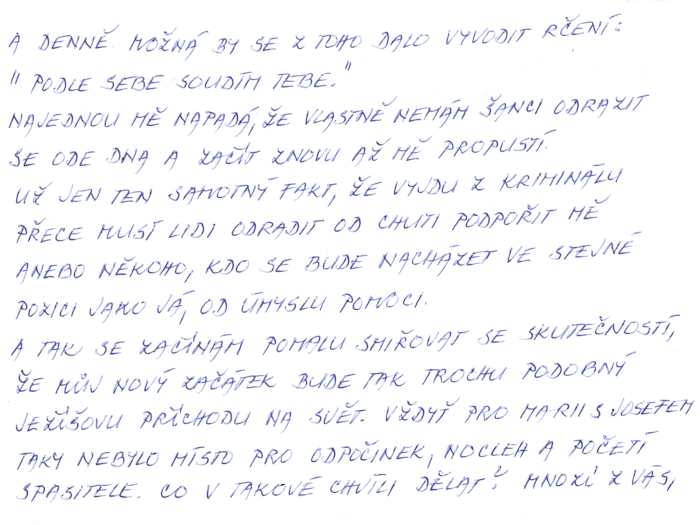 A DENNĚ. MOŽNÁ BY SE Z TOHO DALO VYVODIT RČENÍ:
"PODLE SEBE SOUDÍM TEBE."
NAJEDNOU MĚ NAPADÁ, ŽE VLASTNĚ NEMÁM ŠANCI ODRAZIT
SE ODE DNA A ZAČÍT ZNOVU AŽ MĚ PROPUSTÍ.
UŽ JEN TEN SAMOTNÝ FAKT, ŽE VYJDU Z KRIMINÁLU
PŘECE MUSÍ LIDI ODRADIT OD CHUTI PODPOŘIT MĚ
ANEBO NĚKOHO, KDO SE BUDE NACHÁZET VE STEJNÉ
POZICI JAKO JÁ, OD ÚMYSLU POMOCI.
A TAK SE ZAČÍNÁM POMALU SMIŘOVAT SE SKUTEČNOSTÍ,
ŽE MŮJ NOVÝ ZAČÁTEK BUDE TAK TROCHU PODOBNÝ
JEŽÍŠOVU PŘÍCHODU NA SVĚT. VŽDYŤ PRO MARII S JOSEFEM
TAKY NEBYLO MÍSTO PRO ODPOČINEK, NOCLEH A POČETÍ
SPASITELE. CO V TAKOVÉ CHVÍLI DĚLAT? MNOZÍ Z VÁS,